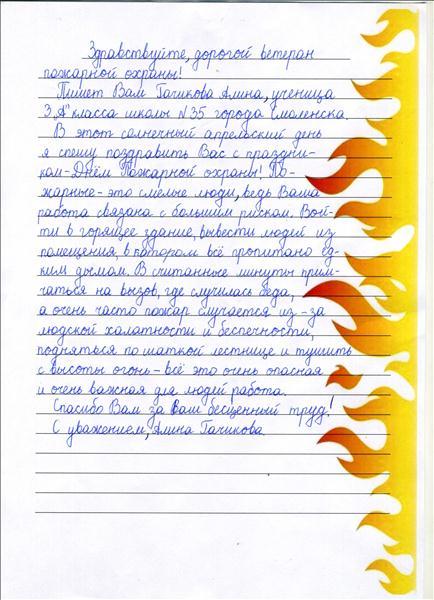 Здравствуйте, дорогой ветеран
пожарной охраны!
Пишет Вам Гачикова Алина, ученица
3 „А" класса школы №35 города Смоленска.
В этот солнечный апрельский день
я спешу поздравить Вас с праздни-
ком - Днём Пожарной охраны! По-
жарные - это смелые люди, ведь Ваша
работа связана с большим риском. Вой-
ти в горящее здание, вывести людей из
помещения, в котором всё пропитано ед-
ким дымом. В считанные минуты прим-
чаться на вызов, где случилась беда,
а очень часто пожар случается из-за
людской халатности и беспечности,
подняться по шаткой лестнице и тушить
с высоты огонь - всё это очень опасная
и очень важная для людей работа.
Спасибо Вам за Ваш бесценный труд!
С уважением, Алина Гачикова